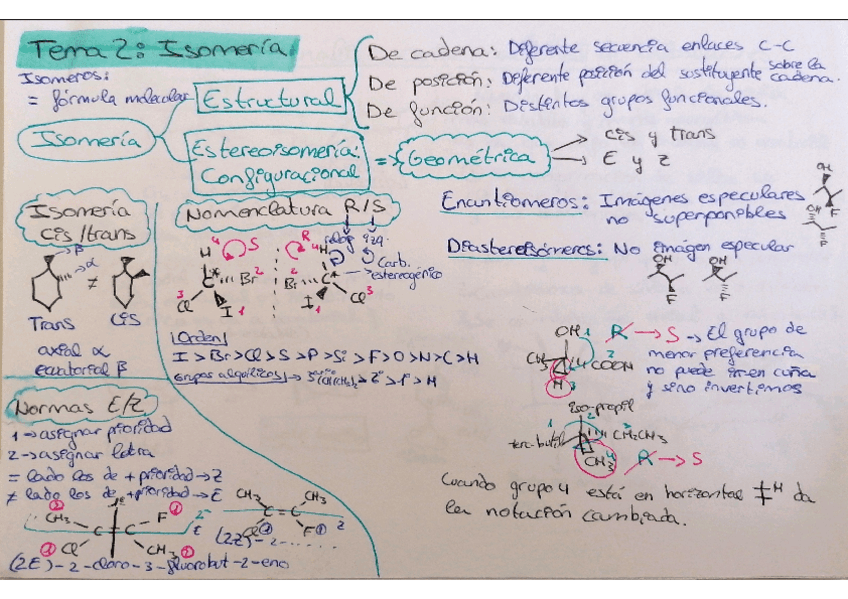 Tema 2: Isomería.
Isomeros:
= fórmula molecular
Isomería
Estructural
De cadena: Diferente secuencia enlaces C-C
De posición: Diferente posición del sustituyente sobre la cadena.
De función: Distintos grupos funcionales.
Estereoisomería:
Configuracional
=> Geométrica
cis y trans
E y Z
Enantiómeros: Imágenes especulares
no superponibles
Diastereisómeros: No imagen especular
OH
F
OH
F
OH
F
OH
F
Isomería
cis/trans
β
α
≠
Trans
Cis
axial α
ecuatorial β
Nomenclatura R/S
reloj izq.
H 4 S
C* Br 2
Cl 3 I 1
R 4 H
2 Br C*
I 1 Cl 3
Carb.
estereogénico
Orden
I > Br > Cl > S > P > Si > F > O > N > C > H
Grupos alquílicos
> 2º > 1º > H
Normas E/Z
1 → asignar prioridad
2 → asignar letra
= lado los de + prioridad → Z
≠ lado los de + prioridad → E
② CH₃ F ①
C = C
① Cl CH₃ ②
E
(2E)-2-cloro-3-fluorobut-2-eno
CH₃ CH₃
C = C Z
Cl ① F ①
(2Z)-2-......
OH 1 R → S → El grupo de
menor preferencia
no puede ir en cuña
y sino invertimos
CH₃ 3 COOH 2
H
iso-propil
terc-butil CH₂CH₃ 3
CH₃ 4 R → S
Cuando grupo 4 está en horizontal H da
la notación cambiada.